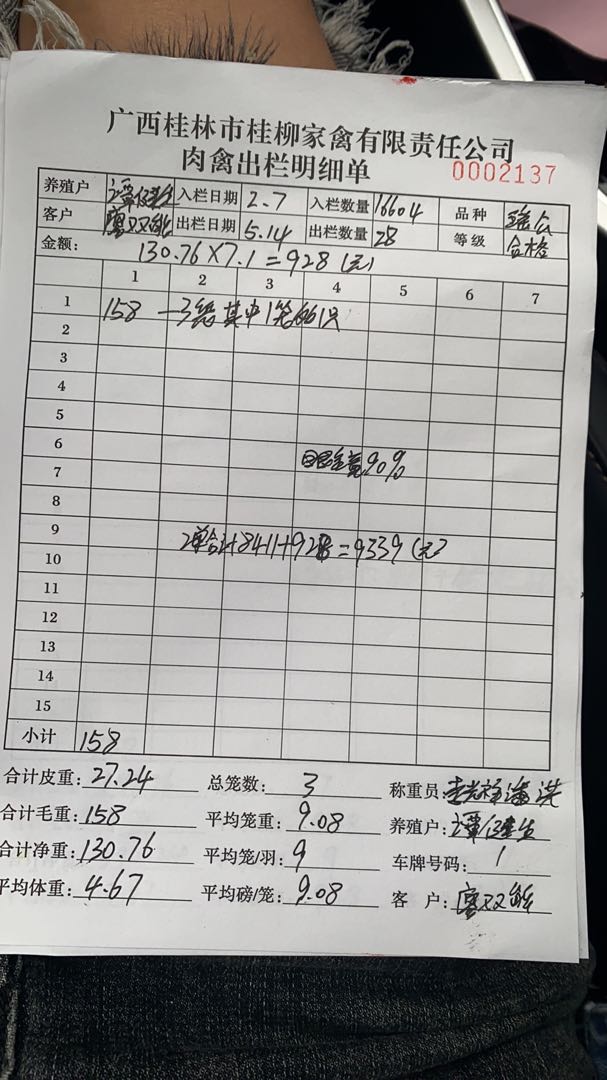 广西桂林市桂柳家禽有限责任公司
肉禽出栏明细单
0002137
养殖户 谭健生 入栏日期 2.7 入栏数量 16604 品种
客户 廖双能 出栏日期 5.14 出栏数量 28 等级 合格
金额: 130.76×7.1=928(元)
1 2 3 4 5 6 7
1 158 一3笼其中1笼 只
2
3
4
5
6
7 90%
8
9
2单合计8411+928=9339(元)
10
11
12
13
14
15
小计 158
合计皮重:27.24 总笼数:3 称重员:
合计毛重:158 平均笼重:9.08 养殖户:谭健生
合计净重:130.76 平均笼/羽:9 车牌号码:1
平均体重:4.67 平均磅/笼:9.08 客户:廖双能